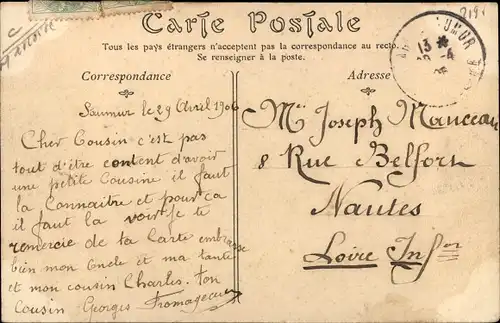 Carte Postale
Tous les pays étrangers n'acceptent pas la correspondance au recto.
Se renseigner à la poste.
Correspondance
Adresse
Saumur le 29 Avril 1906
Cher Cousin c'est pas
tout d'être content d'avoir
une petite Cousine il faut
la Connaitre et pour ça
il faut la voir je te
remercie de ta Carte embrasse
bien mon Oncle et ma tante
et mon cousin Charles. ton
Cousin Georges Fromageau
Mr Joseph Manceau
8 Rue Belfort
Nantes
Loire Infer
13